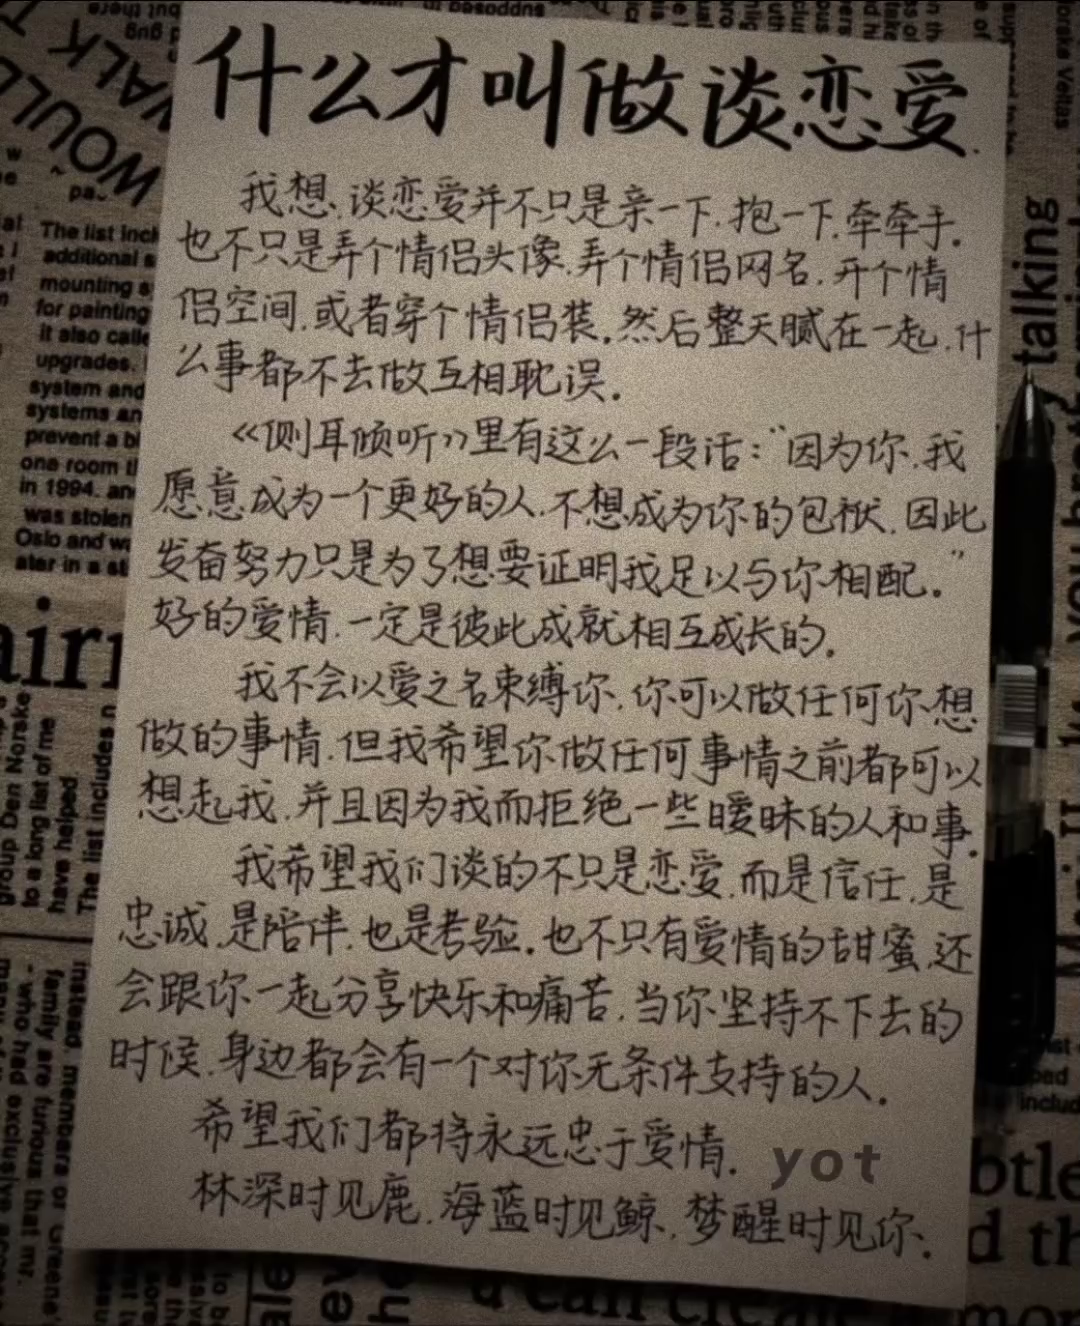 什么才叫做谈恋爱.
我想,谈恋爱并不只是亲一下,抱一下,牵牵手.
也不只是弄个情侣头像,弄个情侣网名,开个情
侣空间,或者穿个情侣装.然后整天腻在一起,什
么事都不去做互相耽误.
《侧耳倾听》里有这么一段话:"因为你,我
愿意成为一个更好的人,不想成为你的包袱,因此
发奋努力只是为了想要证明我足以与你相配."
好的爱情,一定是彼此成就相互成长的.
我不会以爱之名束缚你,你可以做任何你想
做的事情,但我希望你做任何事情之前都可以
想起我,并且因为我而拒绝一些暧昧的人和事.
我希望我们谈的不只是恋爱,而是信任,是
忠诚,是陪伴,也是考验.也不只有爱情的甜蜜,还
会跟你一起分享快乐和痛苦,当你坚持不下去的
时候,身边都会有一个对你无条件支持的人.
希望我们都将永远忠于爱情.
yot
林深时见鹿,海蓝时见鲸,梦醒时见你.
WOULD
WALK
The list incl
additional s
mounting s
for painting
it also calle
upgrades.
system and
systems an
prevent a bl
one room t
in 1994. an
was stolen
Oslo and w
ater in a st
talking
group Den Norske
to a long list of me
have helped
The list includes n
instead, members of
family are furious that mr.
- who had exclusive
btle
d th